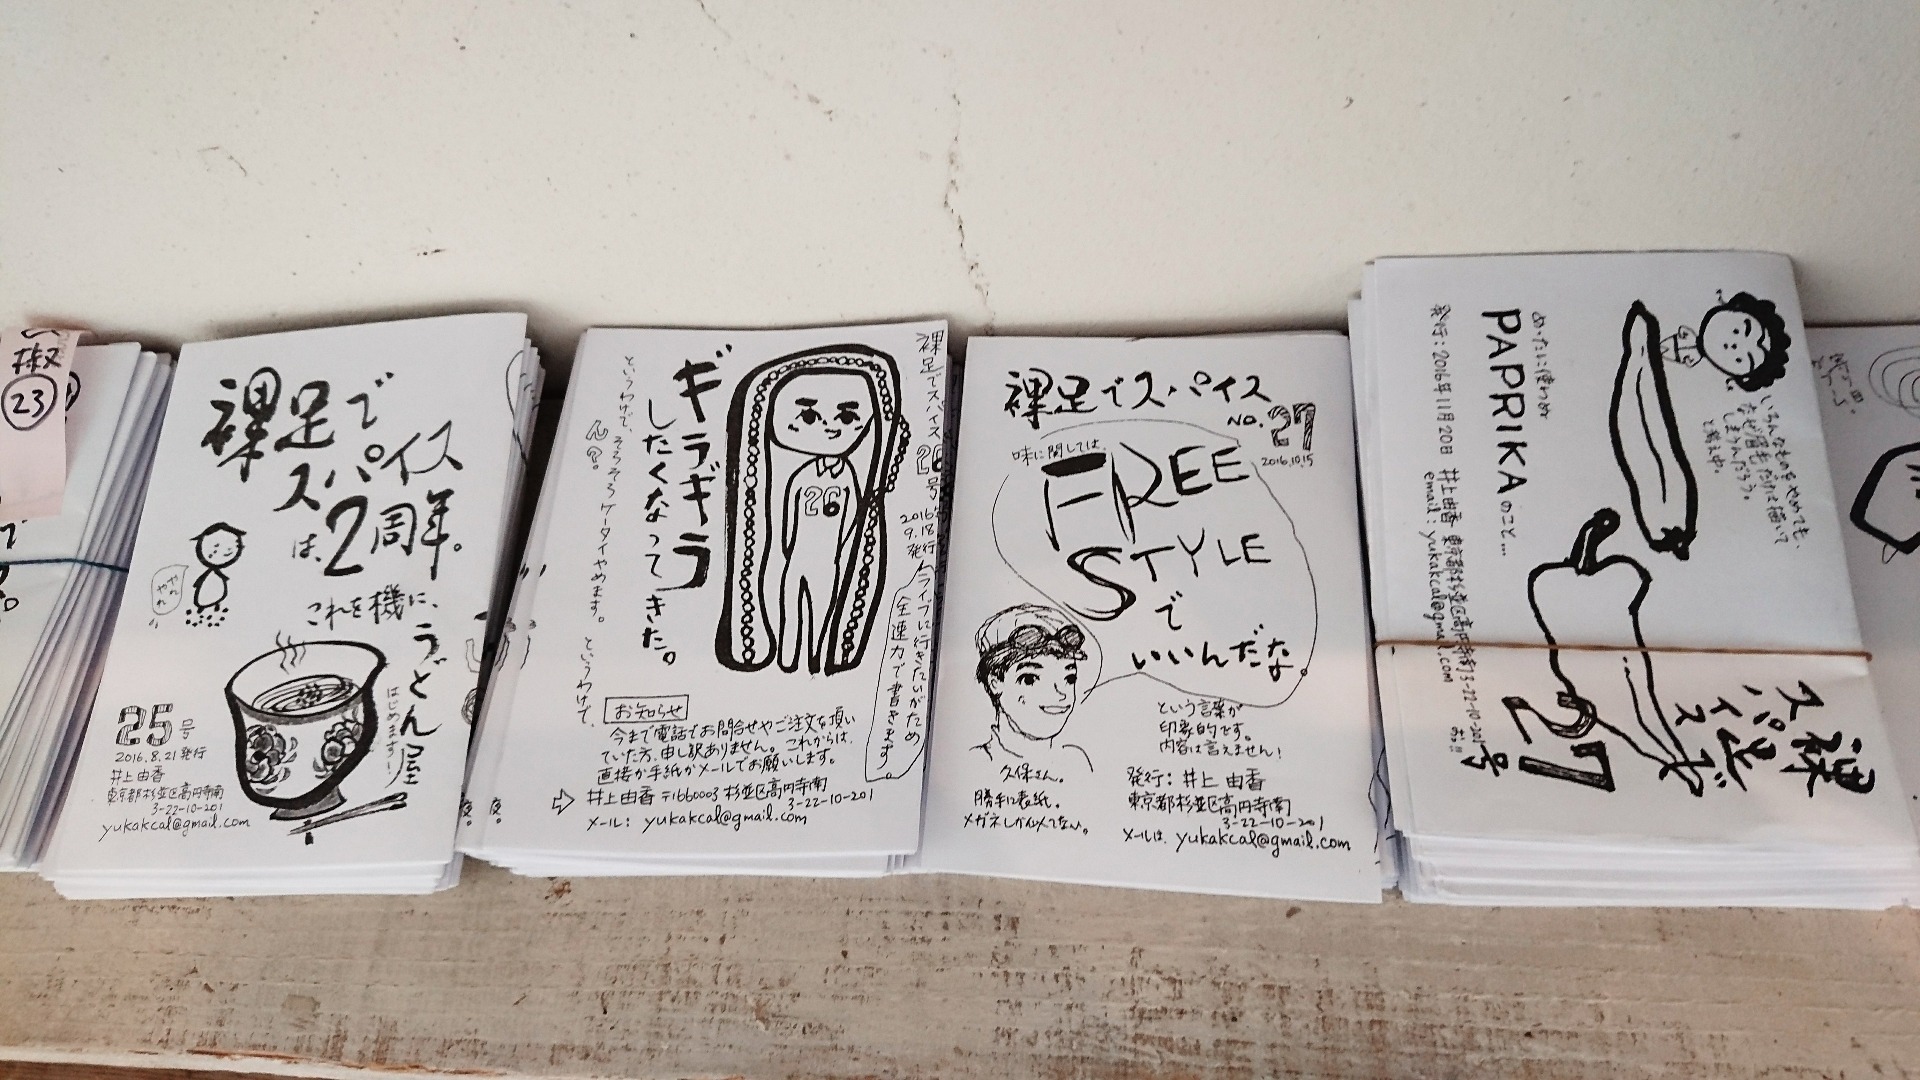 椒
23
裸足で
スパイス
は、2周年。
これを機に、
うどん屋
はじめます!
やれ
やれ
25号
2016.8.21発行
井上由香
東京都杉並区高円寺南
3-22-10-201
yukakcal@gmail.com
裸足でスパイス26号
2016年
9.18発行
ライブに行きたいがため
全速力で書きます。
ギラギラ
したくなってきた。
というわけで、そろそろケータイやめます。というわけで、
ん?
26
お知らせ
今まで電話でお問合せやご注文を頂い
ていた方、申し訳ありません。これからは、
直接か手紙かメールでお願いします。
⇨ 井上由香 〒1660003 杉並区高円寺南
3-22-10-201
メール: yukakcal@gmail.com
夜。
夜。
裸足でスパイス
NO.27
2016.10.15
味に関しては
FREE
STYLE
で
いいんだな。
という言葉が
印象的です。
内容は言えません!
久保さん。
勝手に表紙。
メガネしか似てない。
発行: 井上 由香
東京都杉並区高円寺南
3-22-10-201
メールは、yukakcal@gmail.com
いろんなものをやめても、
なぜ眉毛だけは描いて
しまうんだろう。
と考え中。
めったに使わぬ
PAPRIKAのこと...
発行: 2016年11月20日 井上由香 東京都杉並区高円寺南3-22-10-201
email: yukakcal@gmail.com
裸足で
スパイス
27号